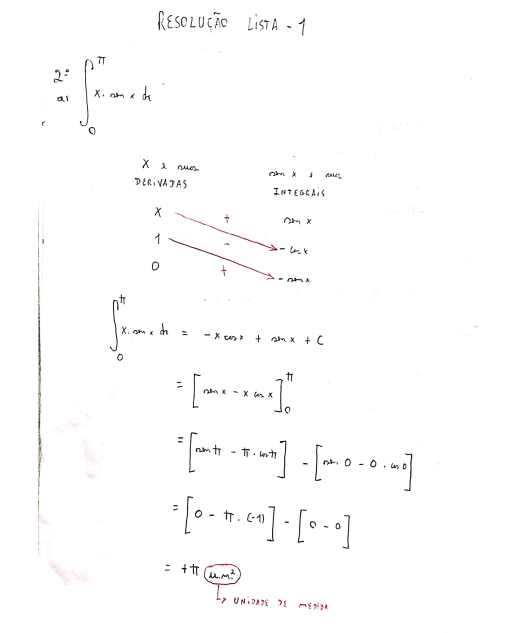 RESOLUÇÃO LISTA - 1
2ª
a) ∫₀^π x. sen x dx
x e suas sen x e suas
DERIVADAS INTEGRAIS
x + sen x
1 - - cos x
0 + - sen x
∫₀^π x. sen x dx = -x cos x + sen x + C
= [sen x - x cos x]₀^π
= [sen π - π. cos π] - [sen 0 - 0. cos 0]
= [0 - π. (-1)] - [0 - 0]
= +π u.m.²
↳ UNIDADE DE MEDIDA